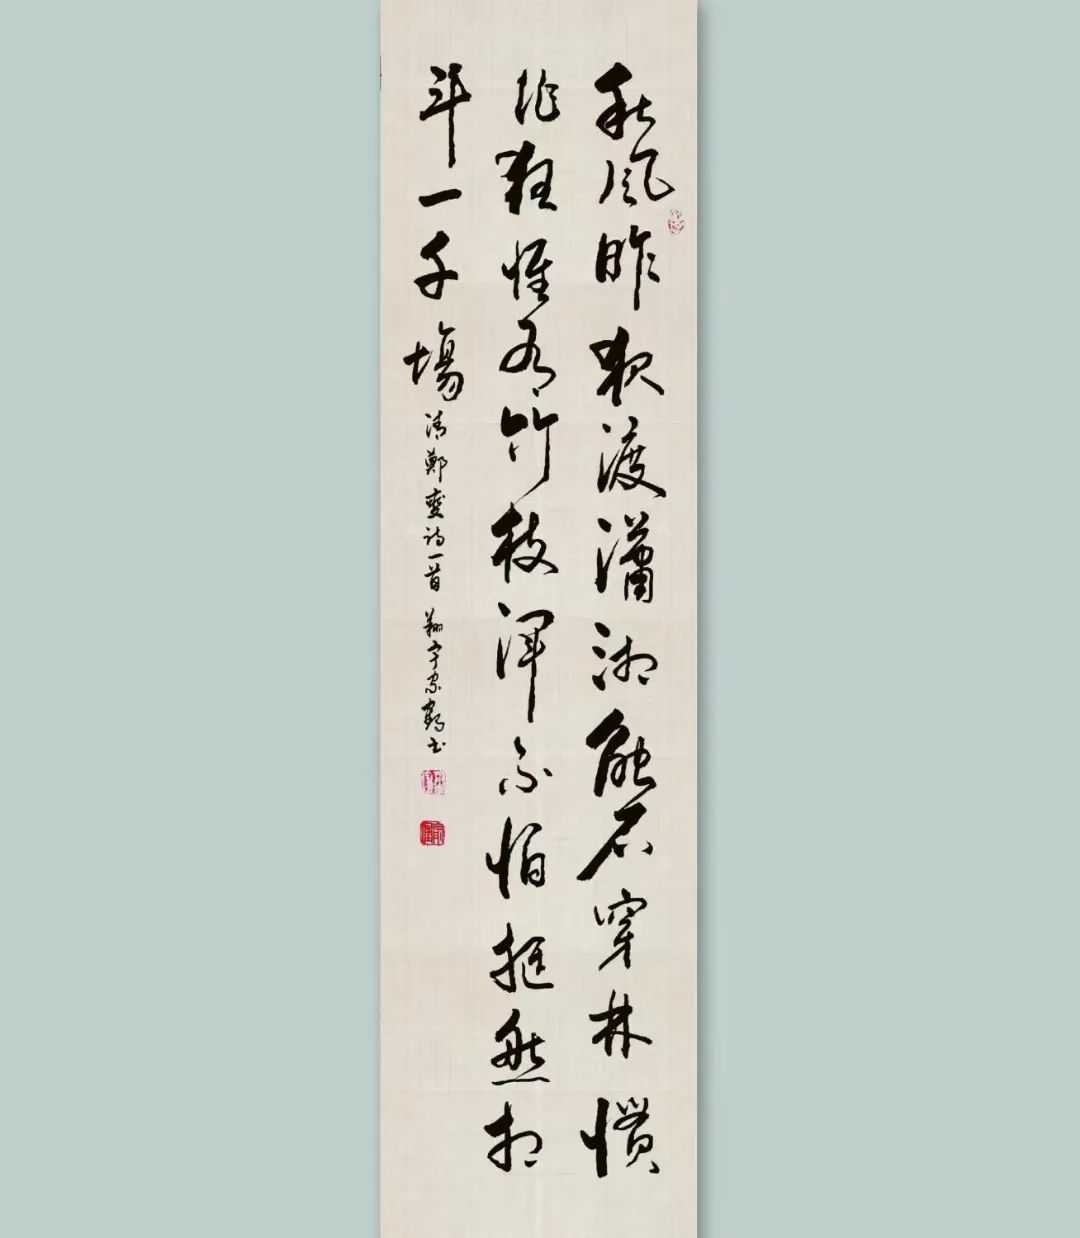 秋风昨夜渡瀟湘触石穿林惯
作狂惟有竹枝浑不怕挺然相
斗一千場
清鄭燮诗一首 翔宇家鹤书